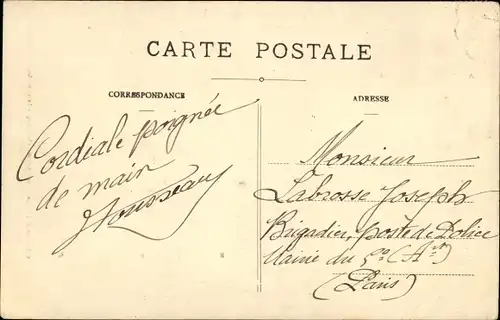 CARTE POSTALE
CORRESPONDANCE
ADRESSE
Cordiale poignée
de main
Monsieur
Labrosse Joseph
Brigadier, poste de Police
Mairie du 5e (Art)
(Paris)